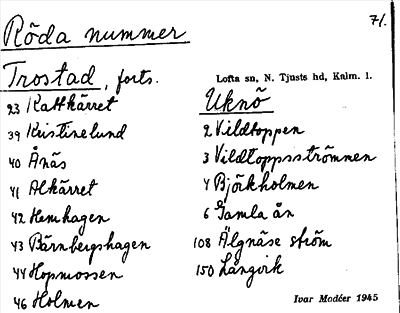 Röda nummer
71.
Trostad, forts.
23 Kattkärret
39 Kristinelund
40 Ånäs
41 Alkärret
42 Hemhagen
43 Bärnbergshagen
44 Hopmossen
46 Holmen
Lofta sn, N. Tjusts hd, Kalm. l.
Uknö
2 Vildtoppen
3 Vildtoppsströmmen
4 Björkholmen
6 Gamla ån
108 Älgnäse ström
150 Långvik
Ivar Modéer 1945